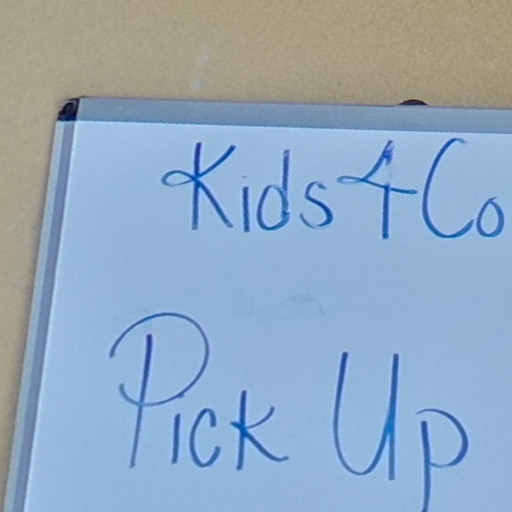 Kids 4 Co
Pick Up